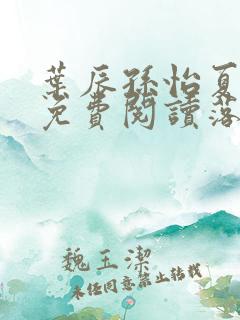 葉辰孫怡夏
免費閱讀落
魏玉潔
未經同意禁止轉載